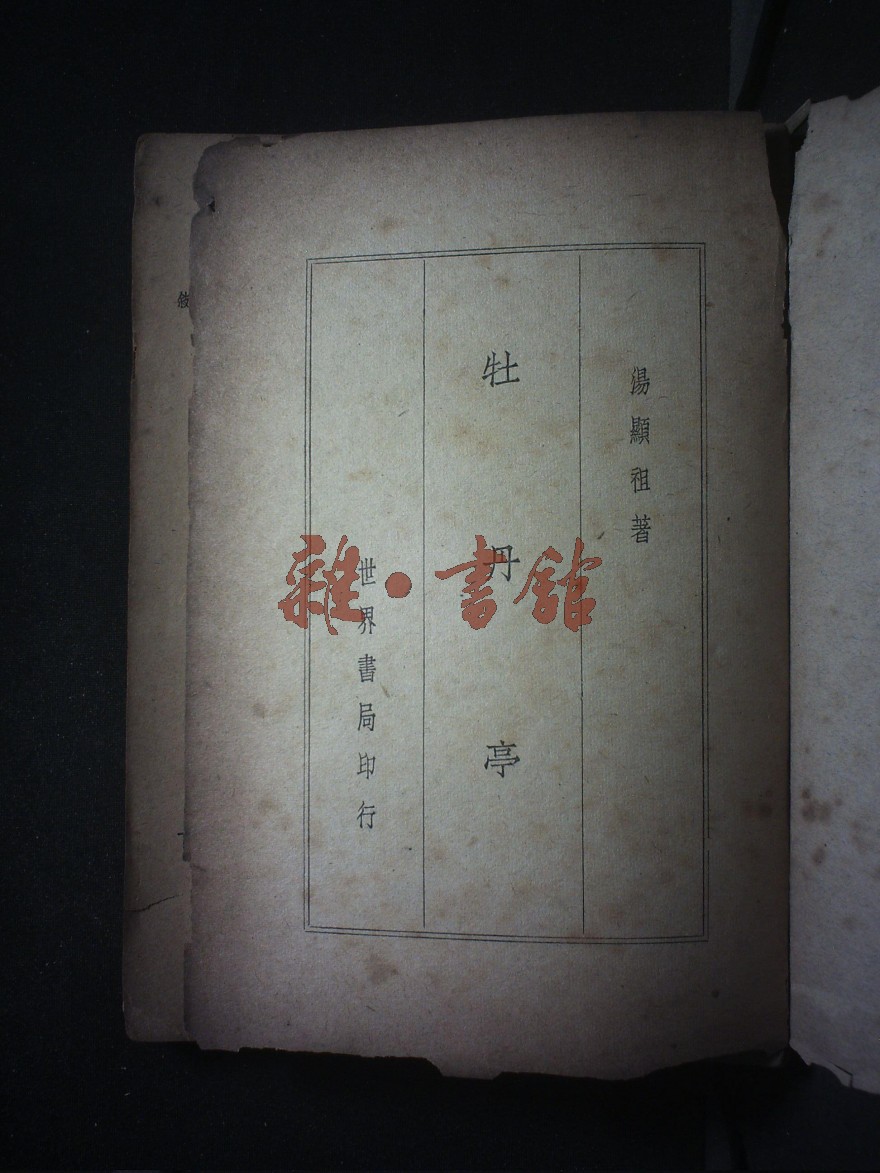 湯顯祖著
牡丹亭
世界書局印行
雜·書館
敍